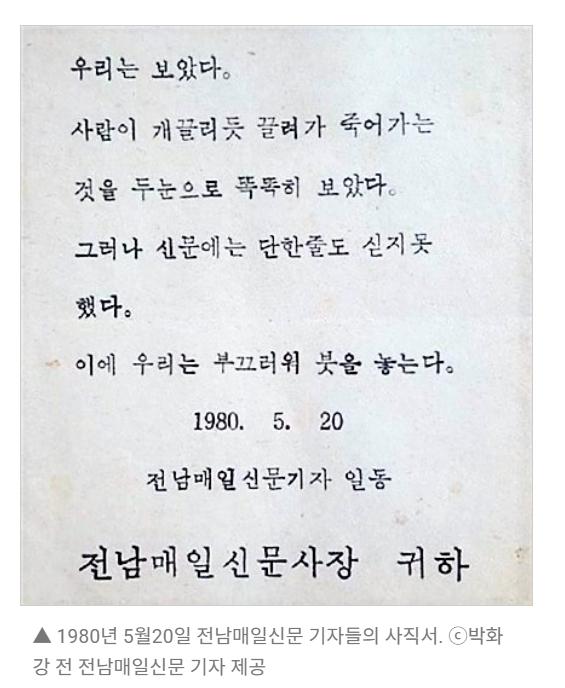 우리는 보았다.
사람이 개끌리듯 끌려가 죽어가는
것을 두눈으로 똑똑히 보았다.
그러나 신문에는 단한줄도 싣지못
했다.
이에 우리는 부끄러워 붓을 놓는다.
1980. 5. 20
전남매일신문기자 일동
전남매일신문사장 귀하
▲ 1980년 5월20일 전남매일신문 기자들의 사직서. ⓒ박화
강 전 전남매일신문 기자 제공